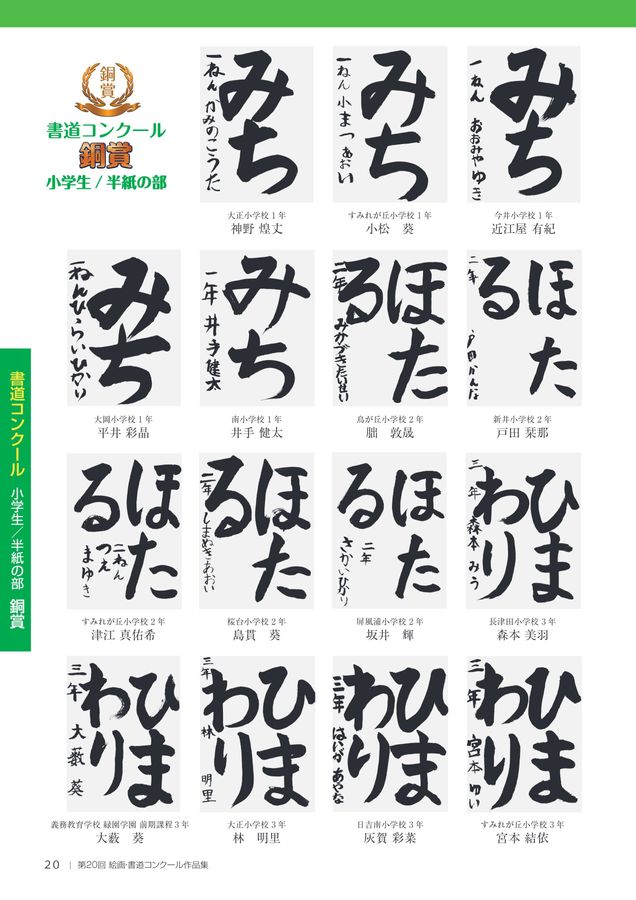 銅
賞
書道コンクール
銅賞
小学生 / 半紙の部
みち
一ねん かみのこうた
大正小学校1年
神野 煌丈
みち
一ねん 小まつ あおい
すみれが丘小学校1年
小松 葵
みち
一ねん おおみや ゆき
今井小学校1年
近江屋 有紀
みち
一ねんひらいひかり
大岡小学校1年
平井 彩晶
みち
一年 井手健太
南小学校1年
井手 健太
ほた
る
二年 みかづきたいせい
鳥が丘小学校2年
朏 敦晟
ほた
る
二年 戸田かんな
新井小学校2年
戸田 栞那
ほた
る
二ねん
つえ
まゆき
すみれが丘小学校2年
津江 真佑希
ほた
る
二年 しまぬきあおい
桜台小学校2年
島貫 葵
ほた
る
二年
さかいひかり
屏風浦小学校2年
坂井 輝
ひま
わり
三年 森本 みう
長津田小学校3年
森本 美羽
ひま
わり
三年 大藪 葵
義務教育学校 緑園学園 前期課程3年
大藪 葵
ひま
わり
三年 林 明里
大正小学校3年
林 明里
ひま
わり
三年 はいが あやな
日吉南小学校3年
灰賀 彩菜
ひま
わり
三年 宮本 ゆい
すみれが丘小学校3年
宮本 結依
書道コンクール 小学生/半紙の部 銅賞
20 | 第20回 絵画・書道コンクール作品集